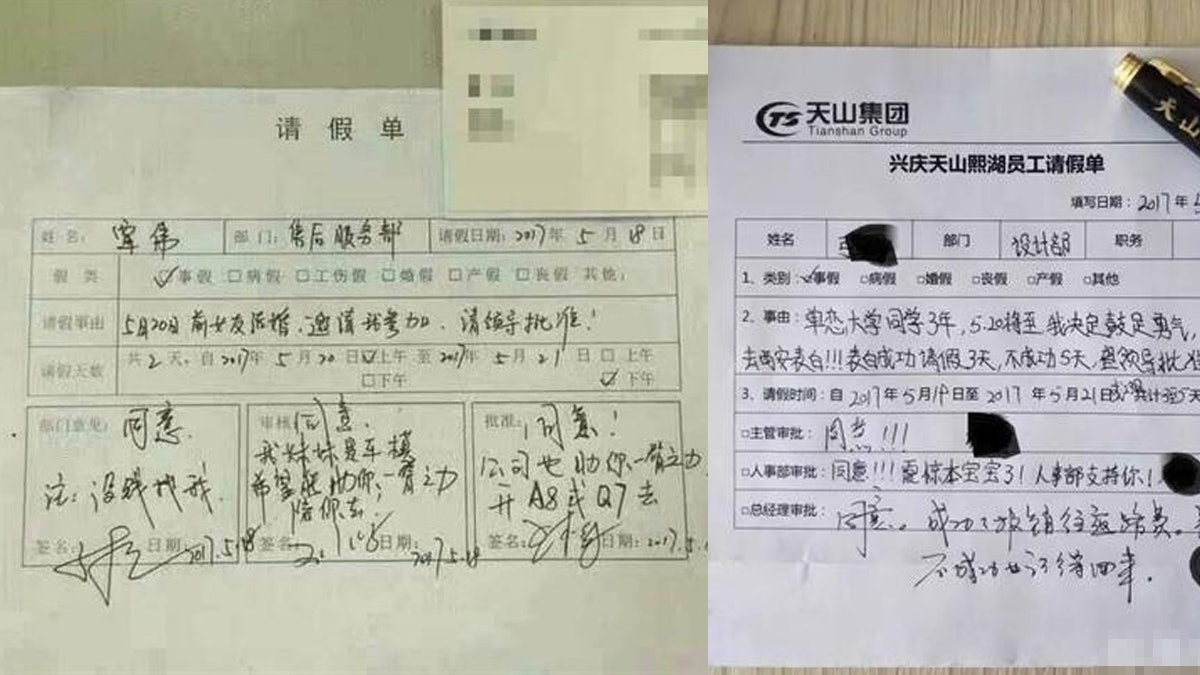 请假单
姓名: 覃伟 部门: 售后服务部 请假日期: 2017年 5月 18日
假类 ☑事假 □病假 □工伤假 □婚假 □产假 □丧假 其他:
请假事由 5月20日前女友结婚、邀请我参加、请领导批准!
请假天数 共2天, 自2017年 5月 20日 ☑上午 □下午 至2017年 5月 21日 □上午 ☑下午
部门意见: 同意.
注: 没钱找我.
签名: 日期: 2017.5.18
审核: 同意.
我妹妹是车模
希望能助你一臂之力
陪你去!
签名: 日期: 2017.5.18
批准: 同意!
公司也助你一臂之力
开A8或Q7去
签名: 日期: 2017.5.
TS 天山集团
Tianshan Group
兴庆天山熙湖员工请假单
填写日期: 2017年
姓名 部门 设计部 职务
1、类别: ☑事假 □病假 □婚假 □丧假 □产假 □其他
2、事由: 单恋大学同学3年, 5.20将至 我决定鼓足勇气,
去西安表白!!!表白成功请假3天, 不成功5天, 望领导批准
3、请假时间: 自2017年5月19日至2017年5月21日 共计3或5天
□主管审批: 同意!!!
□人事部审批: 同意!!!震惊本宝宝了!人事部支持你!
□总经理审批: 同意。成功了报销往返路费。
不成功也记得回来.
天山